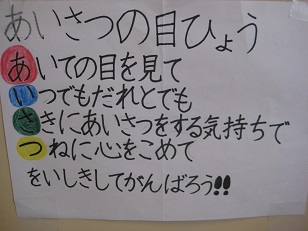 あいさつの目ひょう
あいての目を見て
いつでもだれとでも
さきにあいさつをする気持ちで
つねに心をこめて
をいしきしてがんばろう!!